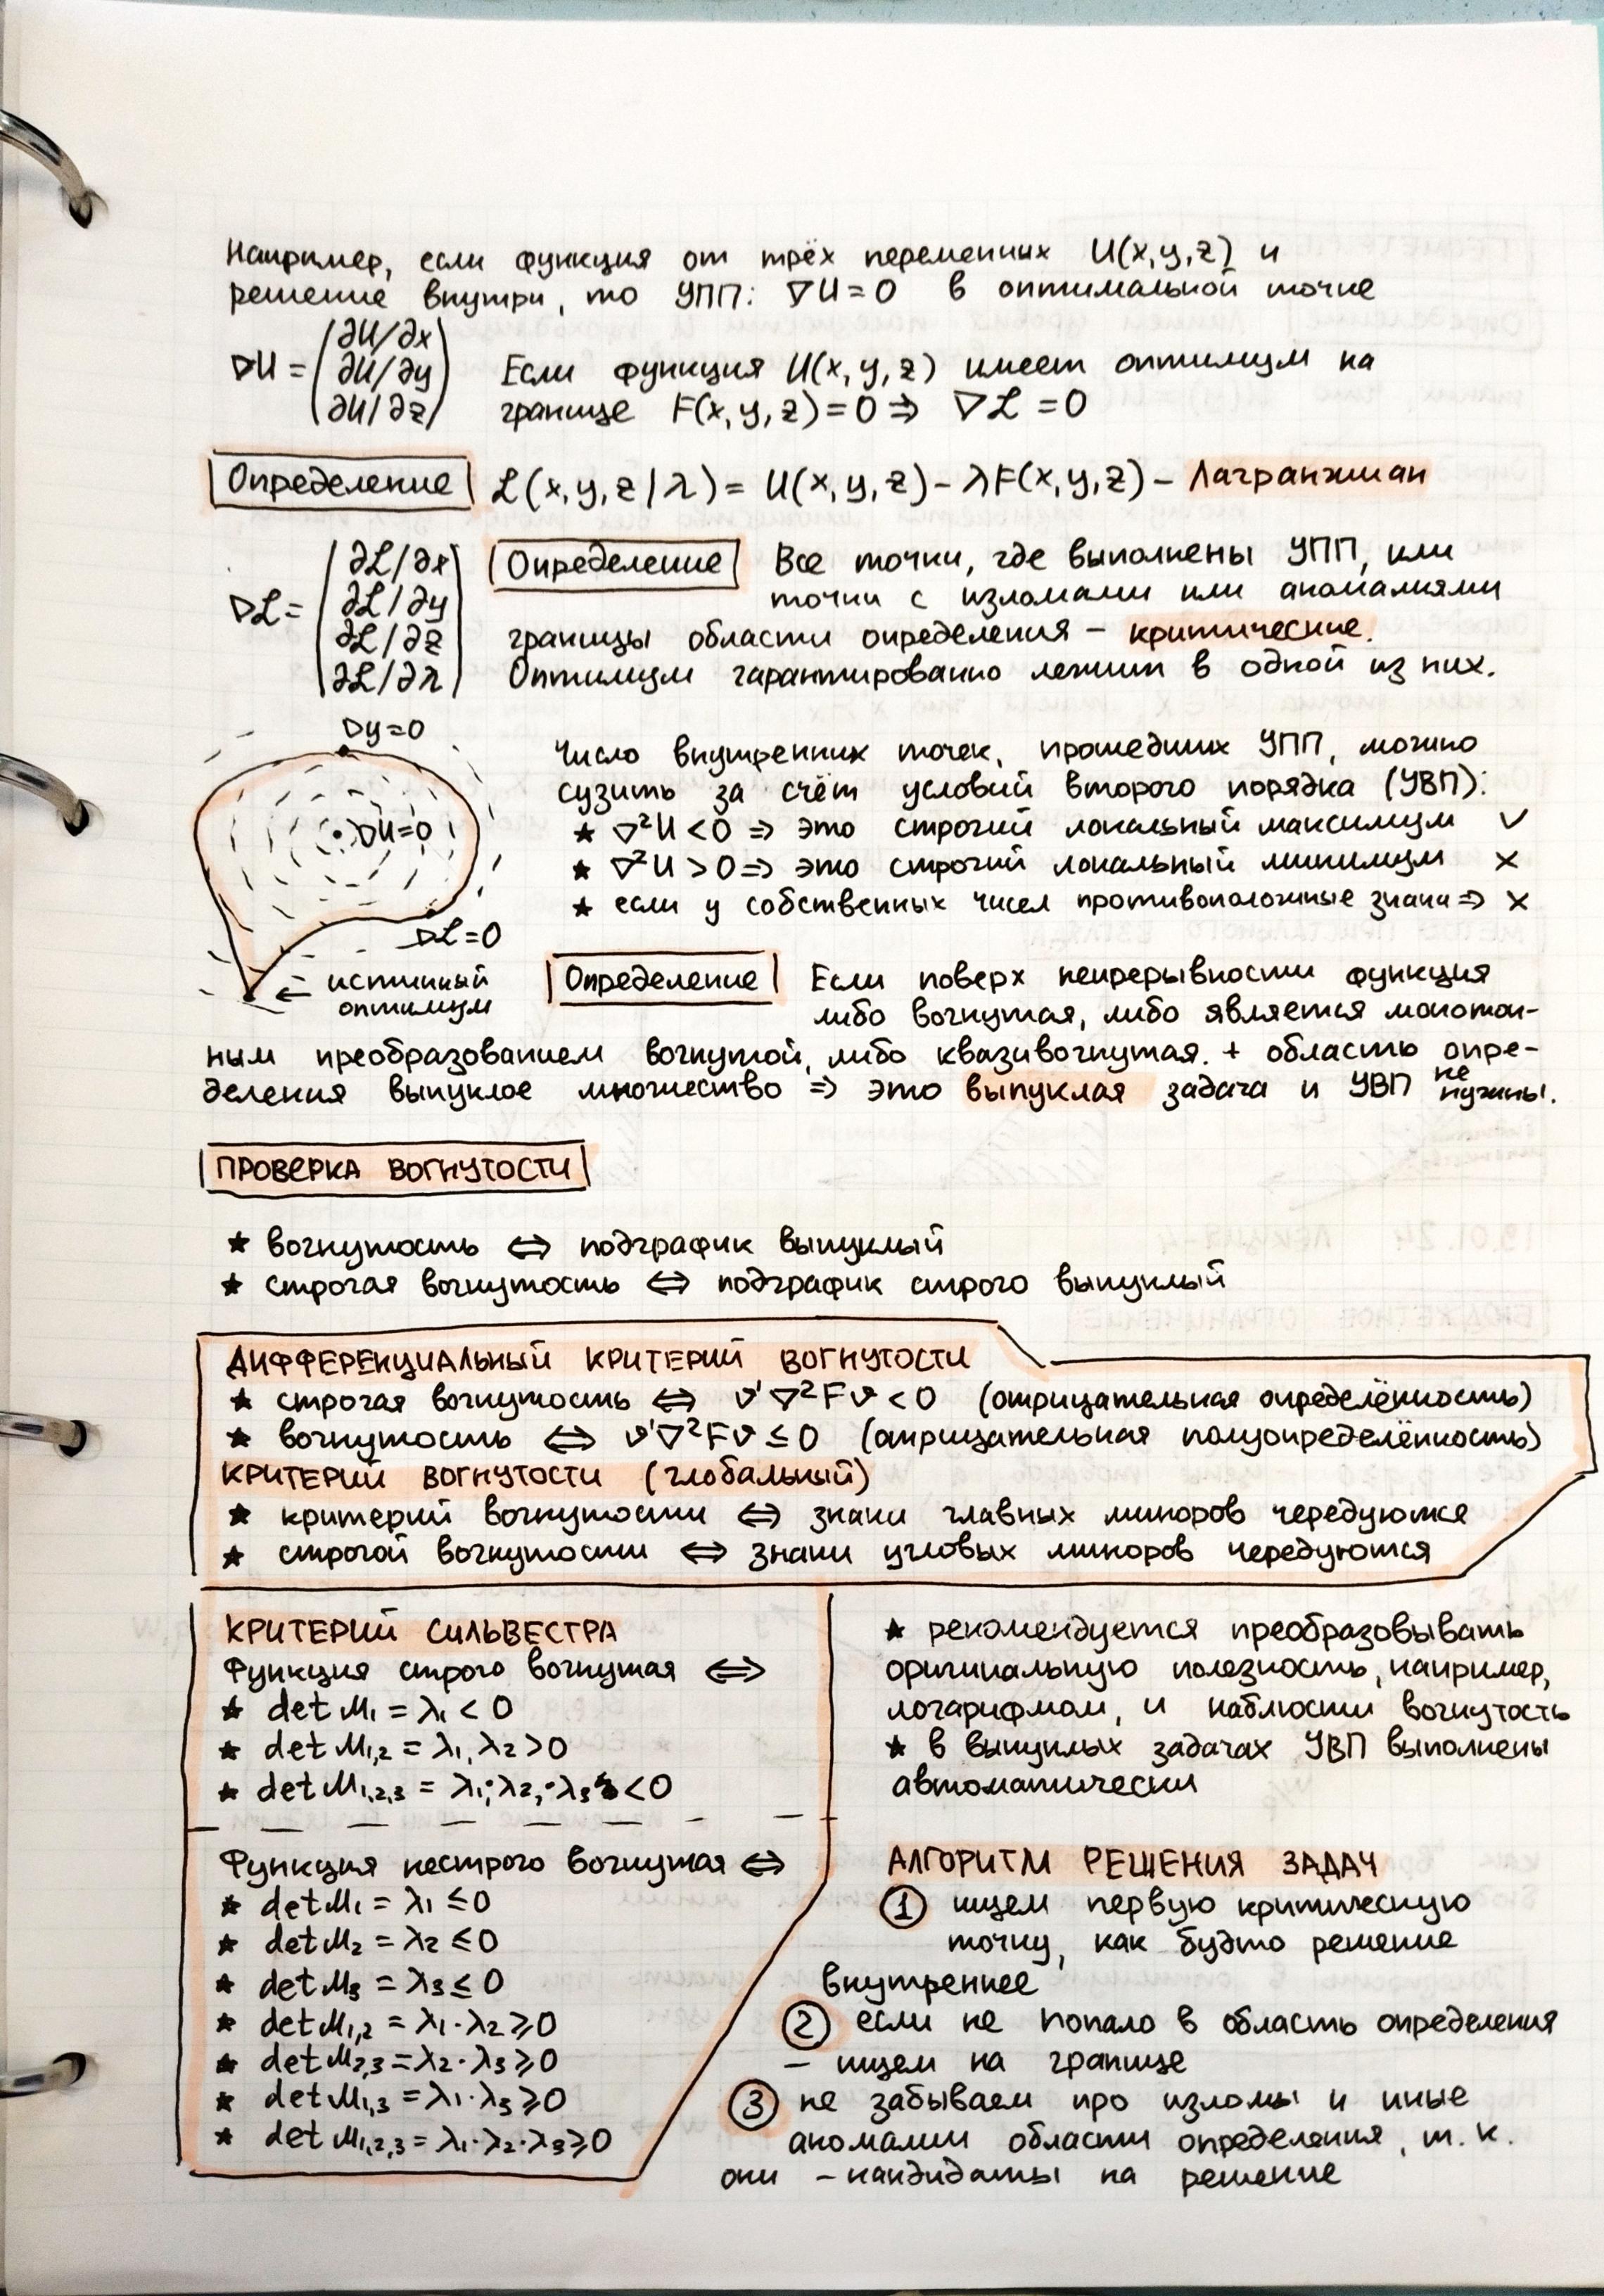 Например, если функция от трёх переменных U(x,y,z) и
решение внутри, то УПП: ∇U=0 в оптимальной точке
∇U = (∂U/∂x
∂U/∂y
∂U/∂z)
Если функция U(x,y,z) имеет оптимум на
границе F(x,y,z)=0 ⇒ ∇ℒ=0
Определение ℒ(x,y,z|λ) = U(x,y,z) - λF(x,y,z) - Лагранжиан
∇ℒ = |∂ℒ/∂x|
|∂ℒ/∂y|
|∂ℒ/∂z|
|∂ℒ/∂λ|
Определение Все точки, где выполнены УПП, или
точки с изломами или аномалиями
границы области определения - критические.
Оптимум гарантированно лежит в одной из них.
∇y=0
∇U=0
∇ℒ=0
← истинный
оптимум
Число внутренних точек, прошедших УПП, можно
сузить за счёт условий второго порядка (УВП):
★ ∇²U<0 ⇒ это строгий локальный максимум ✓
★ ∇²U>0 ⇒ это строгий локальный минимум ×
★ если у собственных чисел противоположные знаки ⇒ ×
Определение Если поверх непрерывности функция
либо вогнутая, либо является монотон-
ным преобразованием вогнутой, либо квазивогнутая. + область опре-
деления выпуклое множество ⇒ это выпуклая задача и УВП не нужны.
ПРОВЕРКА ВОГНУТОСТИ
★ вогнутость ⇔ подграфик выпуклый
★ строгая вогнутость ⇔ подграфик строго выпуклый
ДИФФЕРЕНЦИАЛЬНЫЙ КРИТЕРИЙ ВОГНУТОСТИ
★ строгая вогнутость ⇔ v'∇²Fv<0 (отрицательная определённость)
★ вогнутость ⇔ v'∇²Fv≤0 (отрицательная полуопределённость)
КРИТЕРИЙ ВОГНУТОСТИ (глобальный)
★ критерий вогнутости ⇔ знаки главных миноров чередуются
★ строгой вогнутости ⇔ знаки угловых миноров чередуются
КРИТЕРИЙ СИЛЬВЕСТРА
Функция строго вогнутая ⇔
★ det M₁ = λ₁ < 0
★ det M₁,₂ = λ₁, λ₂ > 0
★ det M₁,₂,₃ = λ₁·λ₂·λ₃ < 0
Функция нестрого вогнутая ⇔
★ det M₁ = λ₁ ≤ 0
★ det M₂ = λ₂ ≤ 0
★ det M₃ = λ₃ ≤ 0
★ det M₁,₂ = λ₁·λ₂ ≥ 0
★ det M₂,₃ = λ₂·λ₃ ≥ 0
★ det M₁,₃ = λ₁·λ₃ ≥ 0
★ det M₁,₂,₃ = λ₁·λ₂·λ₃ ≥ 0
★ рекомендуется преобразовывать
оригинальную полезность, например,
логарифмом, и наблюсти вогнутость
★ в выпуклых задачах УВП выполнены
автоматически
АЛГОРИТМ РЕШЕНИЯ ЗАДАЧ
① ищем первую критическую
точку, как будто решение
внутреннее
② если не попало в область определения
- ищем на границе
③ не забываем про изломы и иные
аномалии области определения, т.к.
они - кандидаты на решение